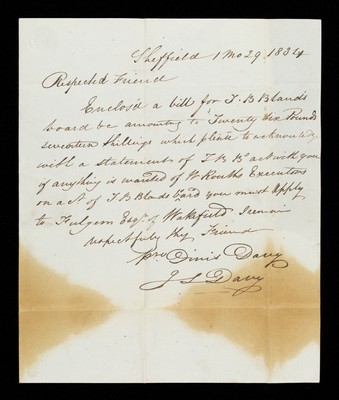 Sheffield 1 Mo 29 1834
Respected Friend
Enclosd a bill for T. B Blands
board &c amounting to Twenty Six Pounds
seventeen shillings which please to acknowledge
with a statement of T B Bs act with you
if anything is wanted of W Rouths Executors
on act of T. B Blands board you must apply
to Fulgem Esqr of Wakefield I remain
respectfully thy Friend
pro Dinis Davy
J S Davy